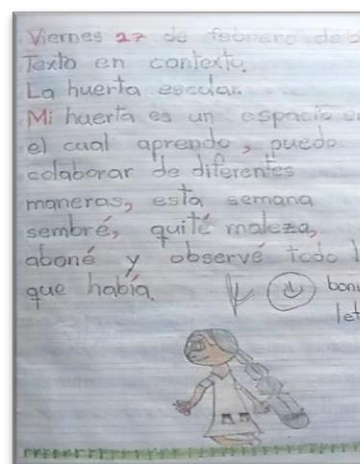 Viernes 27 de febrero de
Texto en contexto.
La huerta escolar.
Mi huerta es un espacio
el cual aprendo, puedo
colaborar de diferentes
maneras, esta semana
sembré, quité maleza,
aboné y observé todo l
que había.